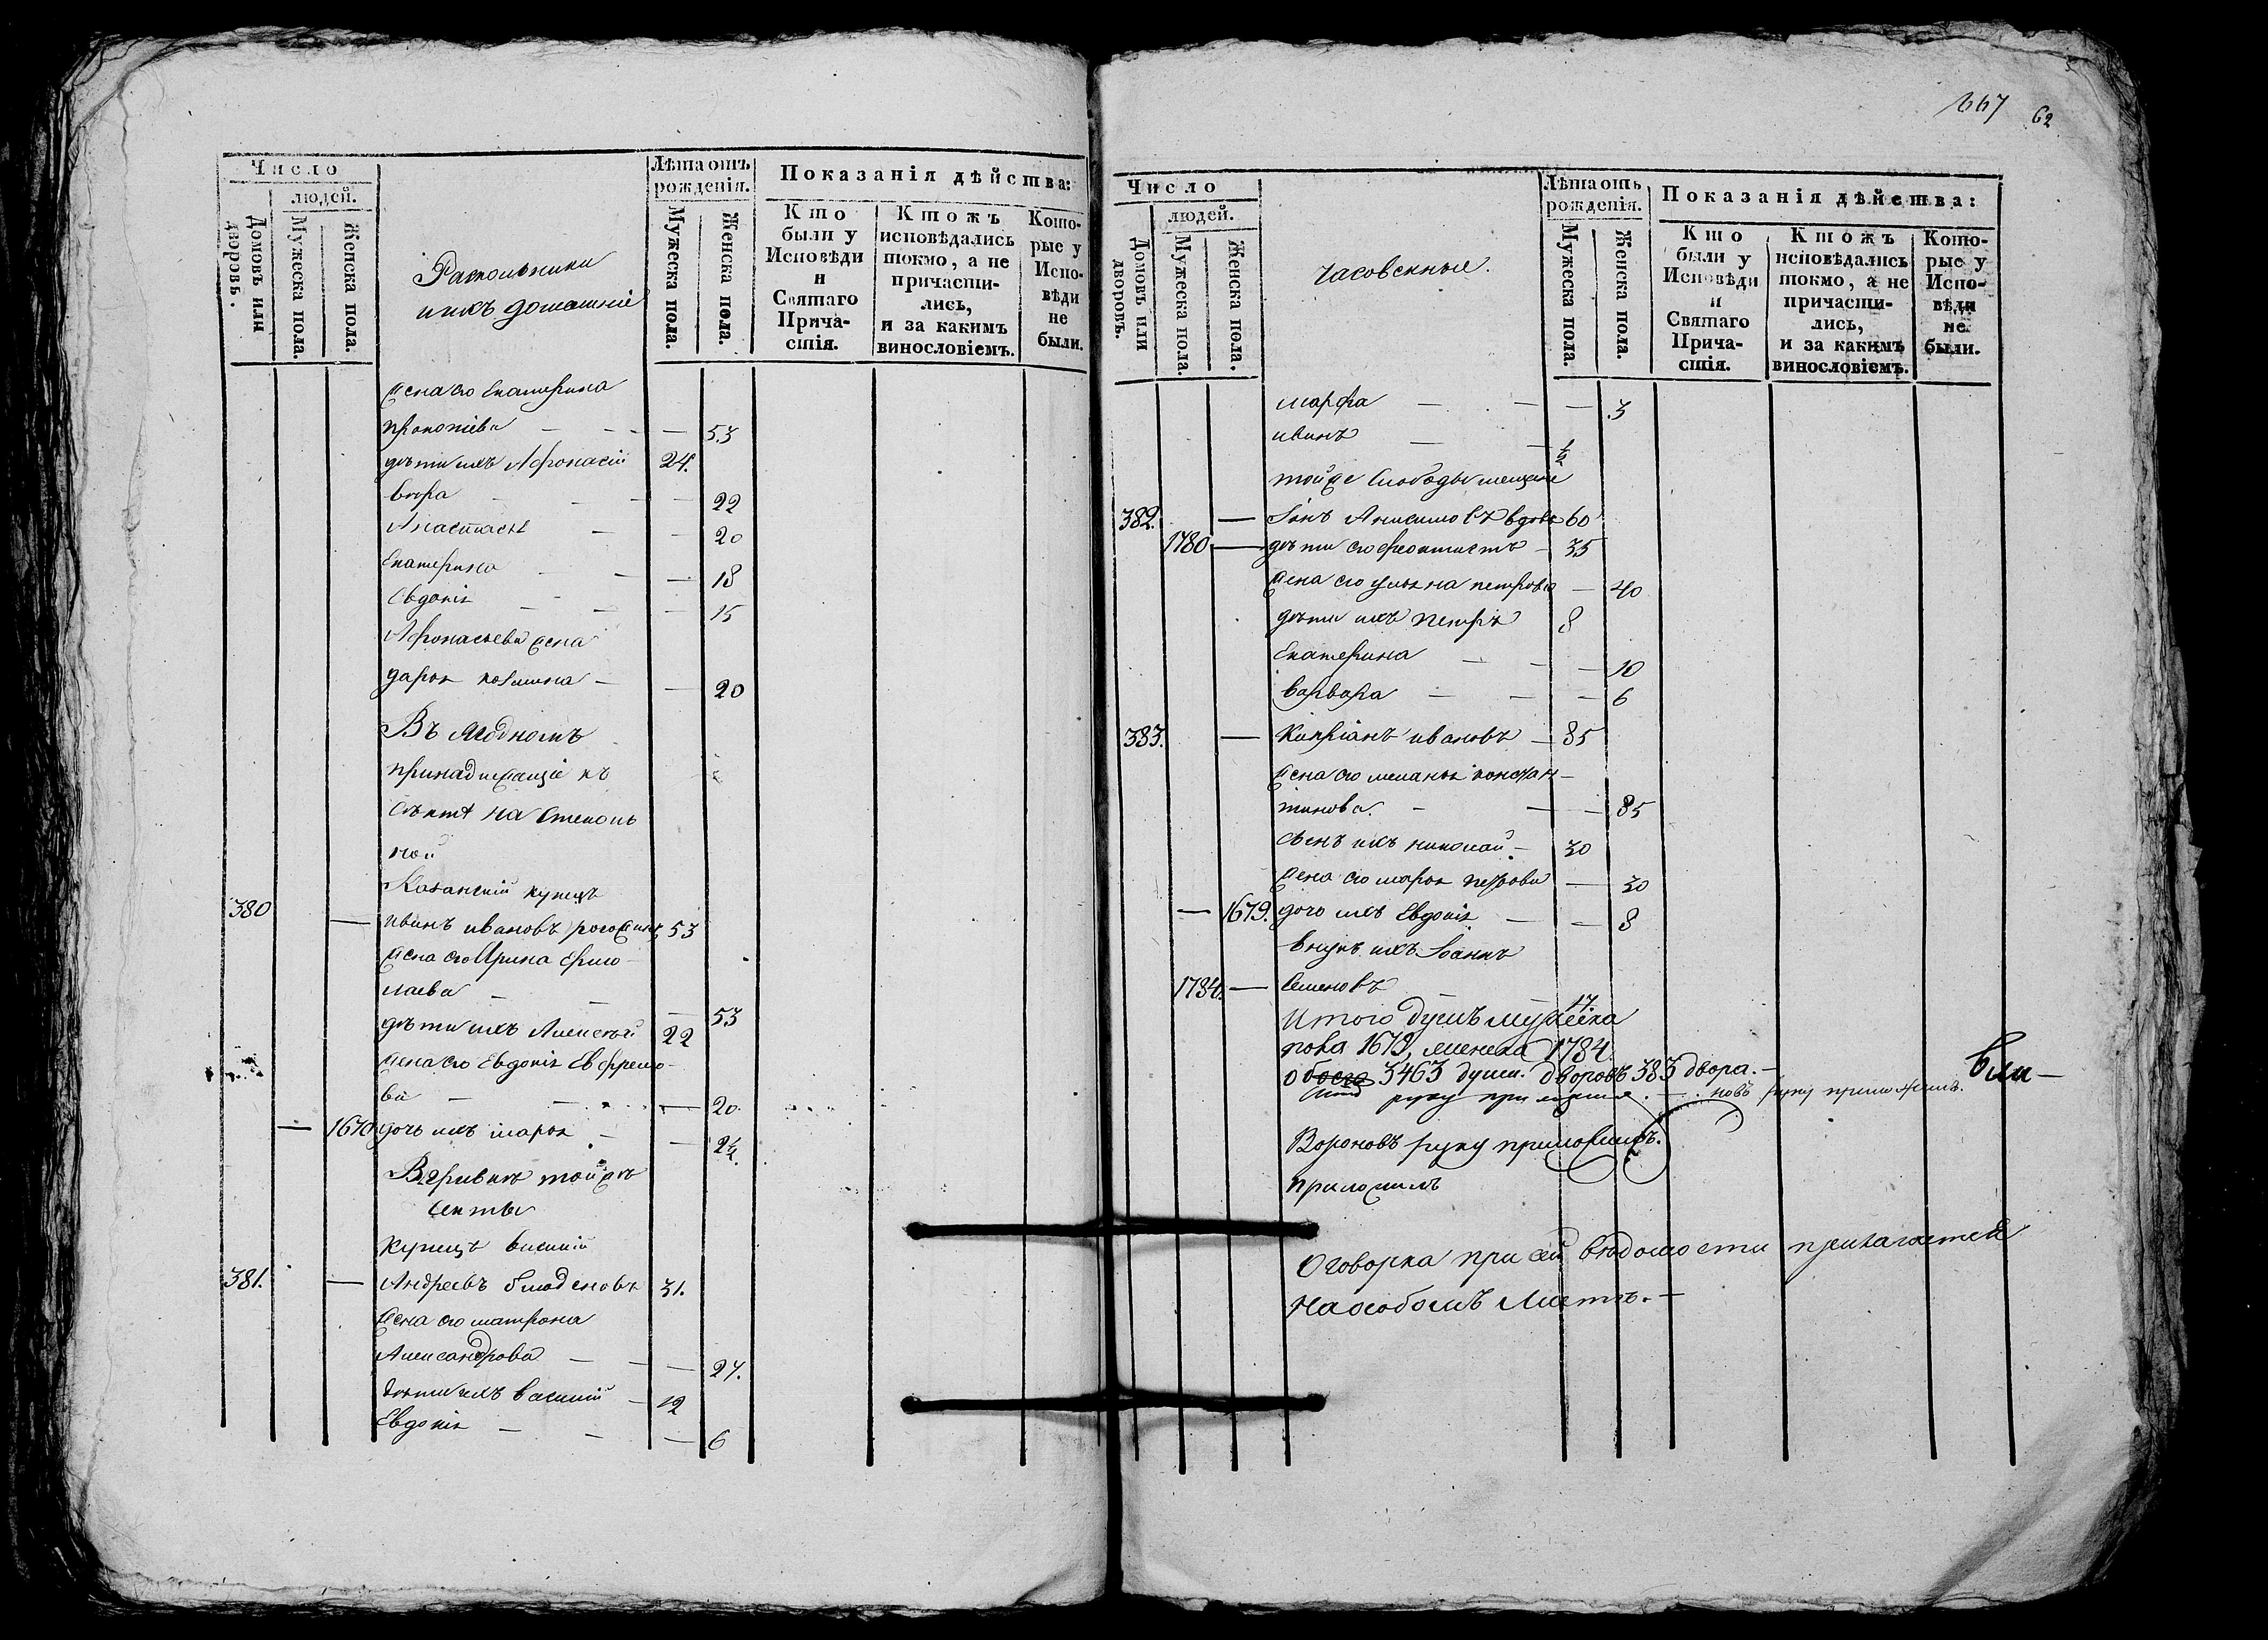 Число
людей.
Домовъ или дворовъ.
Мужеска пола.
Женска пола.
Раскольники
и ихъ домашніе
Лѣта отъ рожденія.
Мужеска пола.
Женска пола.
Показанія дѣйства:
Кто были у Исповѣди и Святаго Причастія.
Ктожъ исповѣдались токмо, а не причастились, и за какимъ винословіемъ.
Которые у Исповѣди не были.
жена его Екатерина
прокопіева — — — 53
дѣти ихъ Афонасій 24.
вѣра — — — 22
Анастасія — — 20
Екатерина — — — 18
Евдокія — — — 15
Афонасьева жена
дарья козмина — — 20
Въ Ягодномъ
принадлежащіе къ
сѣктѣ на Стеколь
ной
Казанскій купецъ
380 — иванъ ивановъ рогожинъ 53
жена его Ирина Ермо
лаева — — — 53
дѣти ихъ Алексѣй 22
жена его Евдокія Ефремо
ва — — — 20.
— 1670 дочь ихъ марья — — 2½.
В гривкѣ тойжъ
секты
Купецъ василій
381. — Андреевъ 31.
жена его матрона
Александрова — — — 27.
дѣти ихъ василій — 12
Евдокія — — — 6
667 62
Число
людей.
Домовъ или дворовъ.
Мужеска пола.
Женска пола.
часовенные.
Лѣта отъ рожденія.
Мужеска пола.
Женска пола.
Показанія дѣйства:
Кто были у Исповѣди и Святаго Причастія.
Ктожъ исповѣдались токмо, а не причастились, и за какимъ винословіемъ.
Которые у Исповѣди не были.
марфа — — — 3
иванъ — — ½
тойже Слободы мещане
382. — Анисимовъ вдовъ 60
1780 — дѣти его феоктистъ — 35
жена его ульяна петрова — 40
дѣти ихъ петръ 8
Екатерина — — — 10
варвара — — — 6
383. — Кипріанъ ивановъ — 85
жена его меланья констан
тинова. — — — 85
сынъ ихъ николай. — 30
жена его марья петрова — 30
— 1679. дочь ихъ Евдокія — — 8
внукъ ихъ Іоаннъ
1784. — Семеновъ 17.
Итого душъ мужеска
пола 1679, женска 1784.
обоего 3463 души. дворовъ 383 двора. —
вли —
руку приложилъ
новъ руку приложилъ.
Вороновъ руку приложилъ.
приложилъ
Оговорка при сей вѣдомости прилагается
На особомъ Листѣ. —